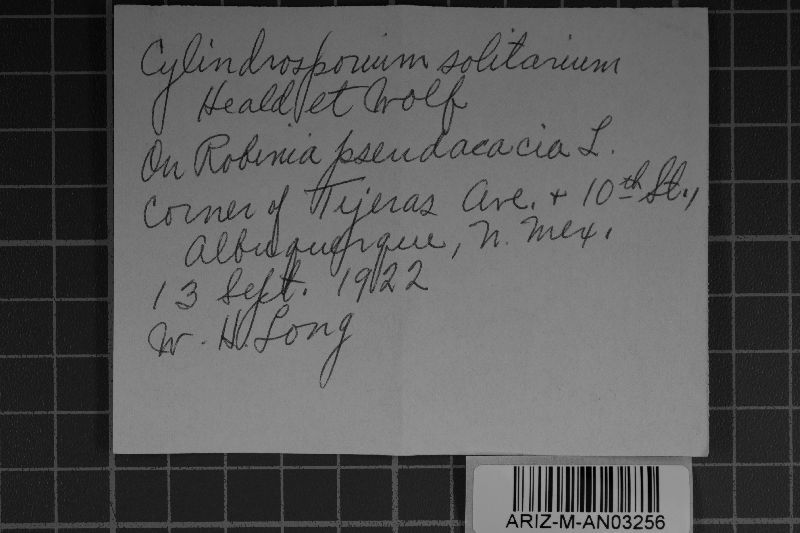 Cylindrosporium solitarium
Heald et Wolf
On Robinia pseudacacia L.
Corner of Tijeras Ave. + 10th St.,
Albuquerque, N. Mex.
13 Sept. 1922
W. H. Long
ARIZ-M-AN03256